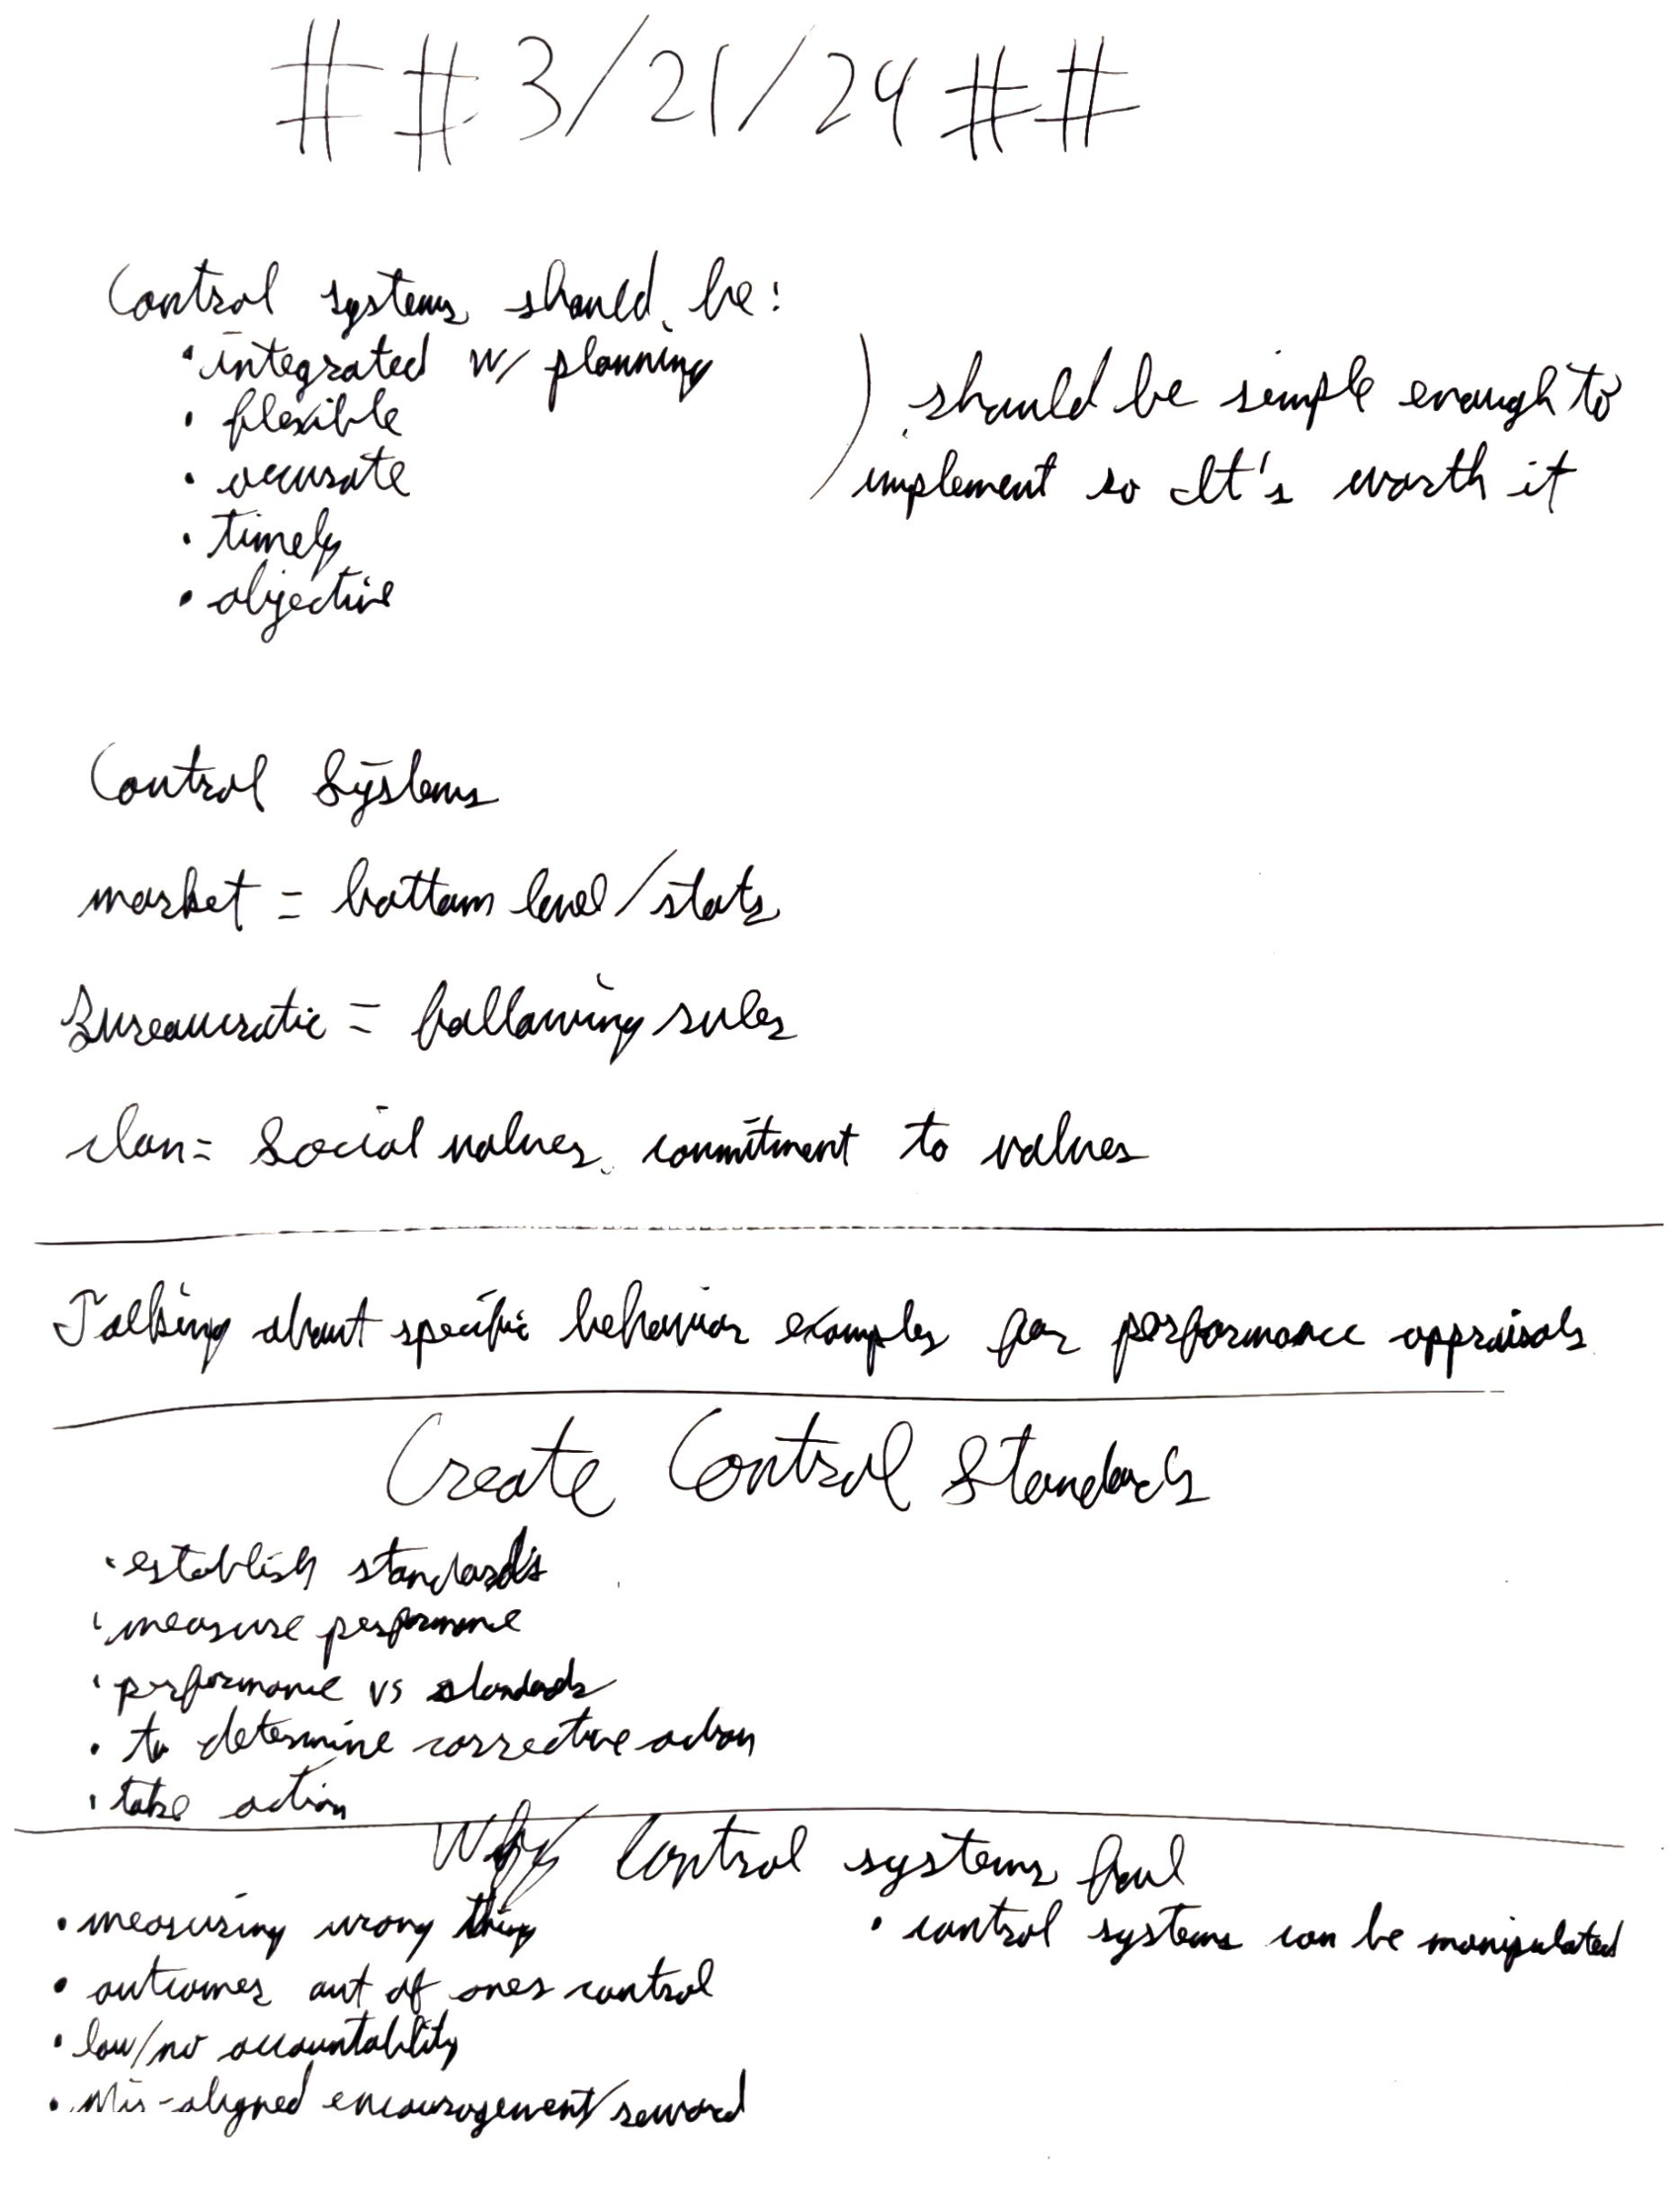 ## 3/21/24 ##
Control systems should be:
• integrated w/ planning
• flexible
• accurate
• timely
• objective
) should be simple enough to
implement so It's worth it
Control Systems
market = bottom level/stats
Bureaucratic = following rules
clan = Social values, commitment to values
Talking about specific behavior examples for performance appraisals
Create Control Standards
• establish standards
• measure performance
• performance vs standards
• to determine corrective action
• take action
Why Control systems fail
• measuring wrong thing
• outcomes out of ones control
• low/no accountablity
• Mis-aligned encouragement/reward
• control systems can be manipulated